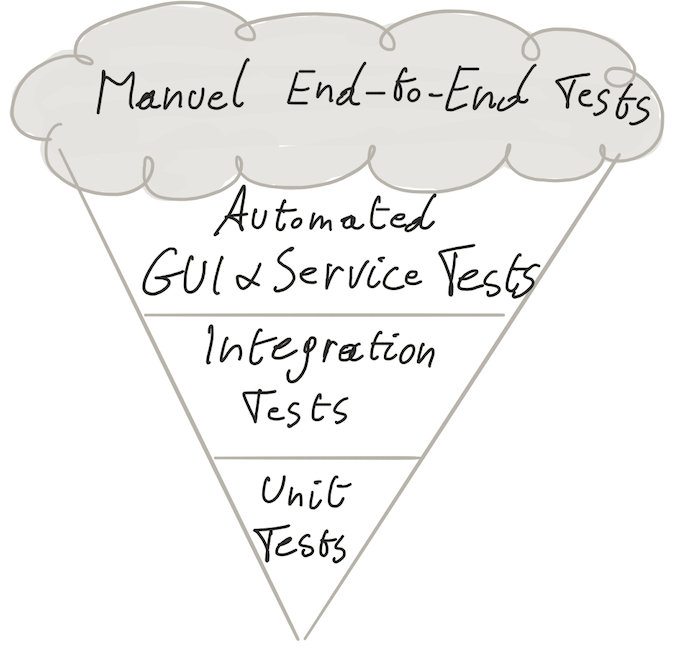 Manuel End-to-End Tests
Automated
GUI & Service Tests
Integration
Tests
Unit
Tests